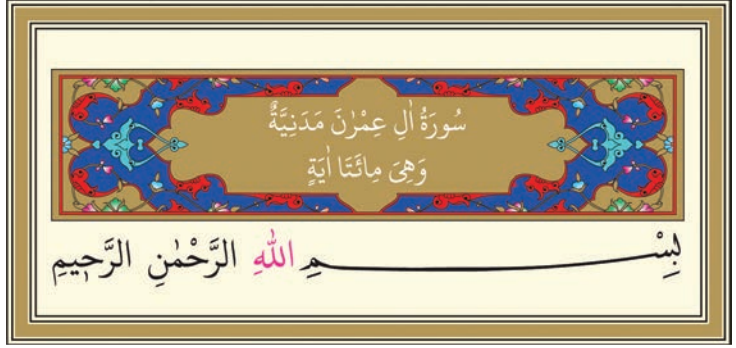 سُورَةُ اٰلِ عِمْرٰنَ مَدَنِيَّةٌ
وَهِيَ مِائَتَا اٰيَةٍ
بِسْمِ اللّٰهِ الرَّحْمٰنِ الرَّحٖيمِ